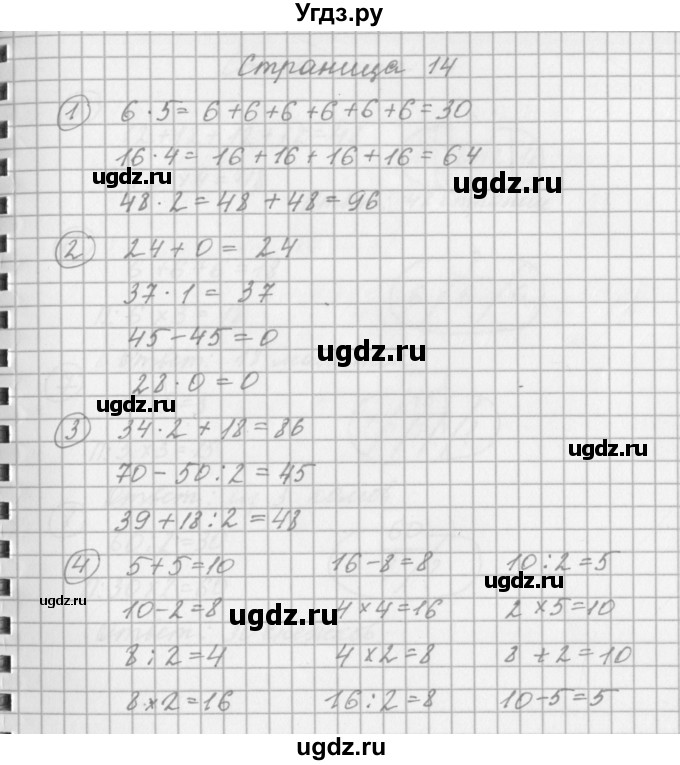 Угдз.ру
Страница 14
1) 6 · 5 = 6 + 6 + 6 + 6 + 6 + 6 = 30
16 · 4 = 16 + 16 + 16 + 16 = 64
ugdz.ru
ugdz.ru
48 · 2 = 48 + 48 = 96
2) 24 + 0 = 24
37 · 1 = 37
45 - 45 = 0
ugdz.ru
28 · 0 = 0
ugdz.ru
3) 34 · 2 + 18 = 86
ugdz.ru
70 - 50 : 2 = 45
39 + 18 : 2 = 48
4) 5 + 5 = 10 16 - 8 = 8 10 : 2 = 5
ugdz.ru
ugdz.ru
10 - 2 = 8 4 × 4 = 16 2 × 5 = 10
ugdz.ru
8 : 2 = 4 4 × 2 = 8 8 + 2 = 10
8 × 2 = 16 16 : 2 = 8 10 - 5 = 5
ugdz.ru